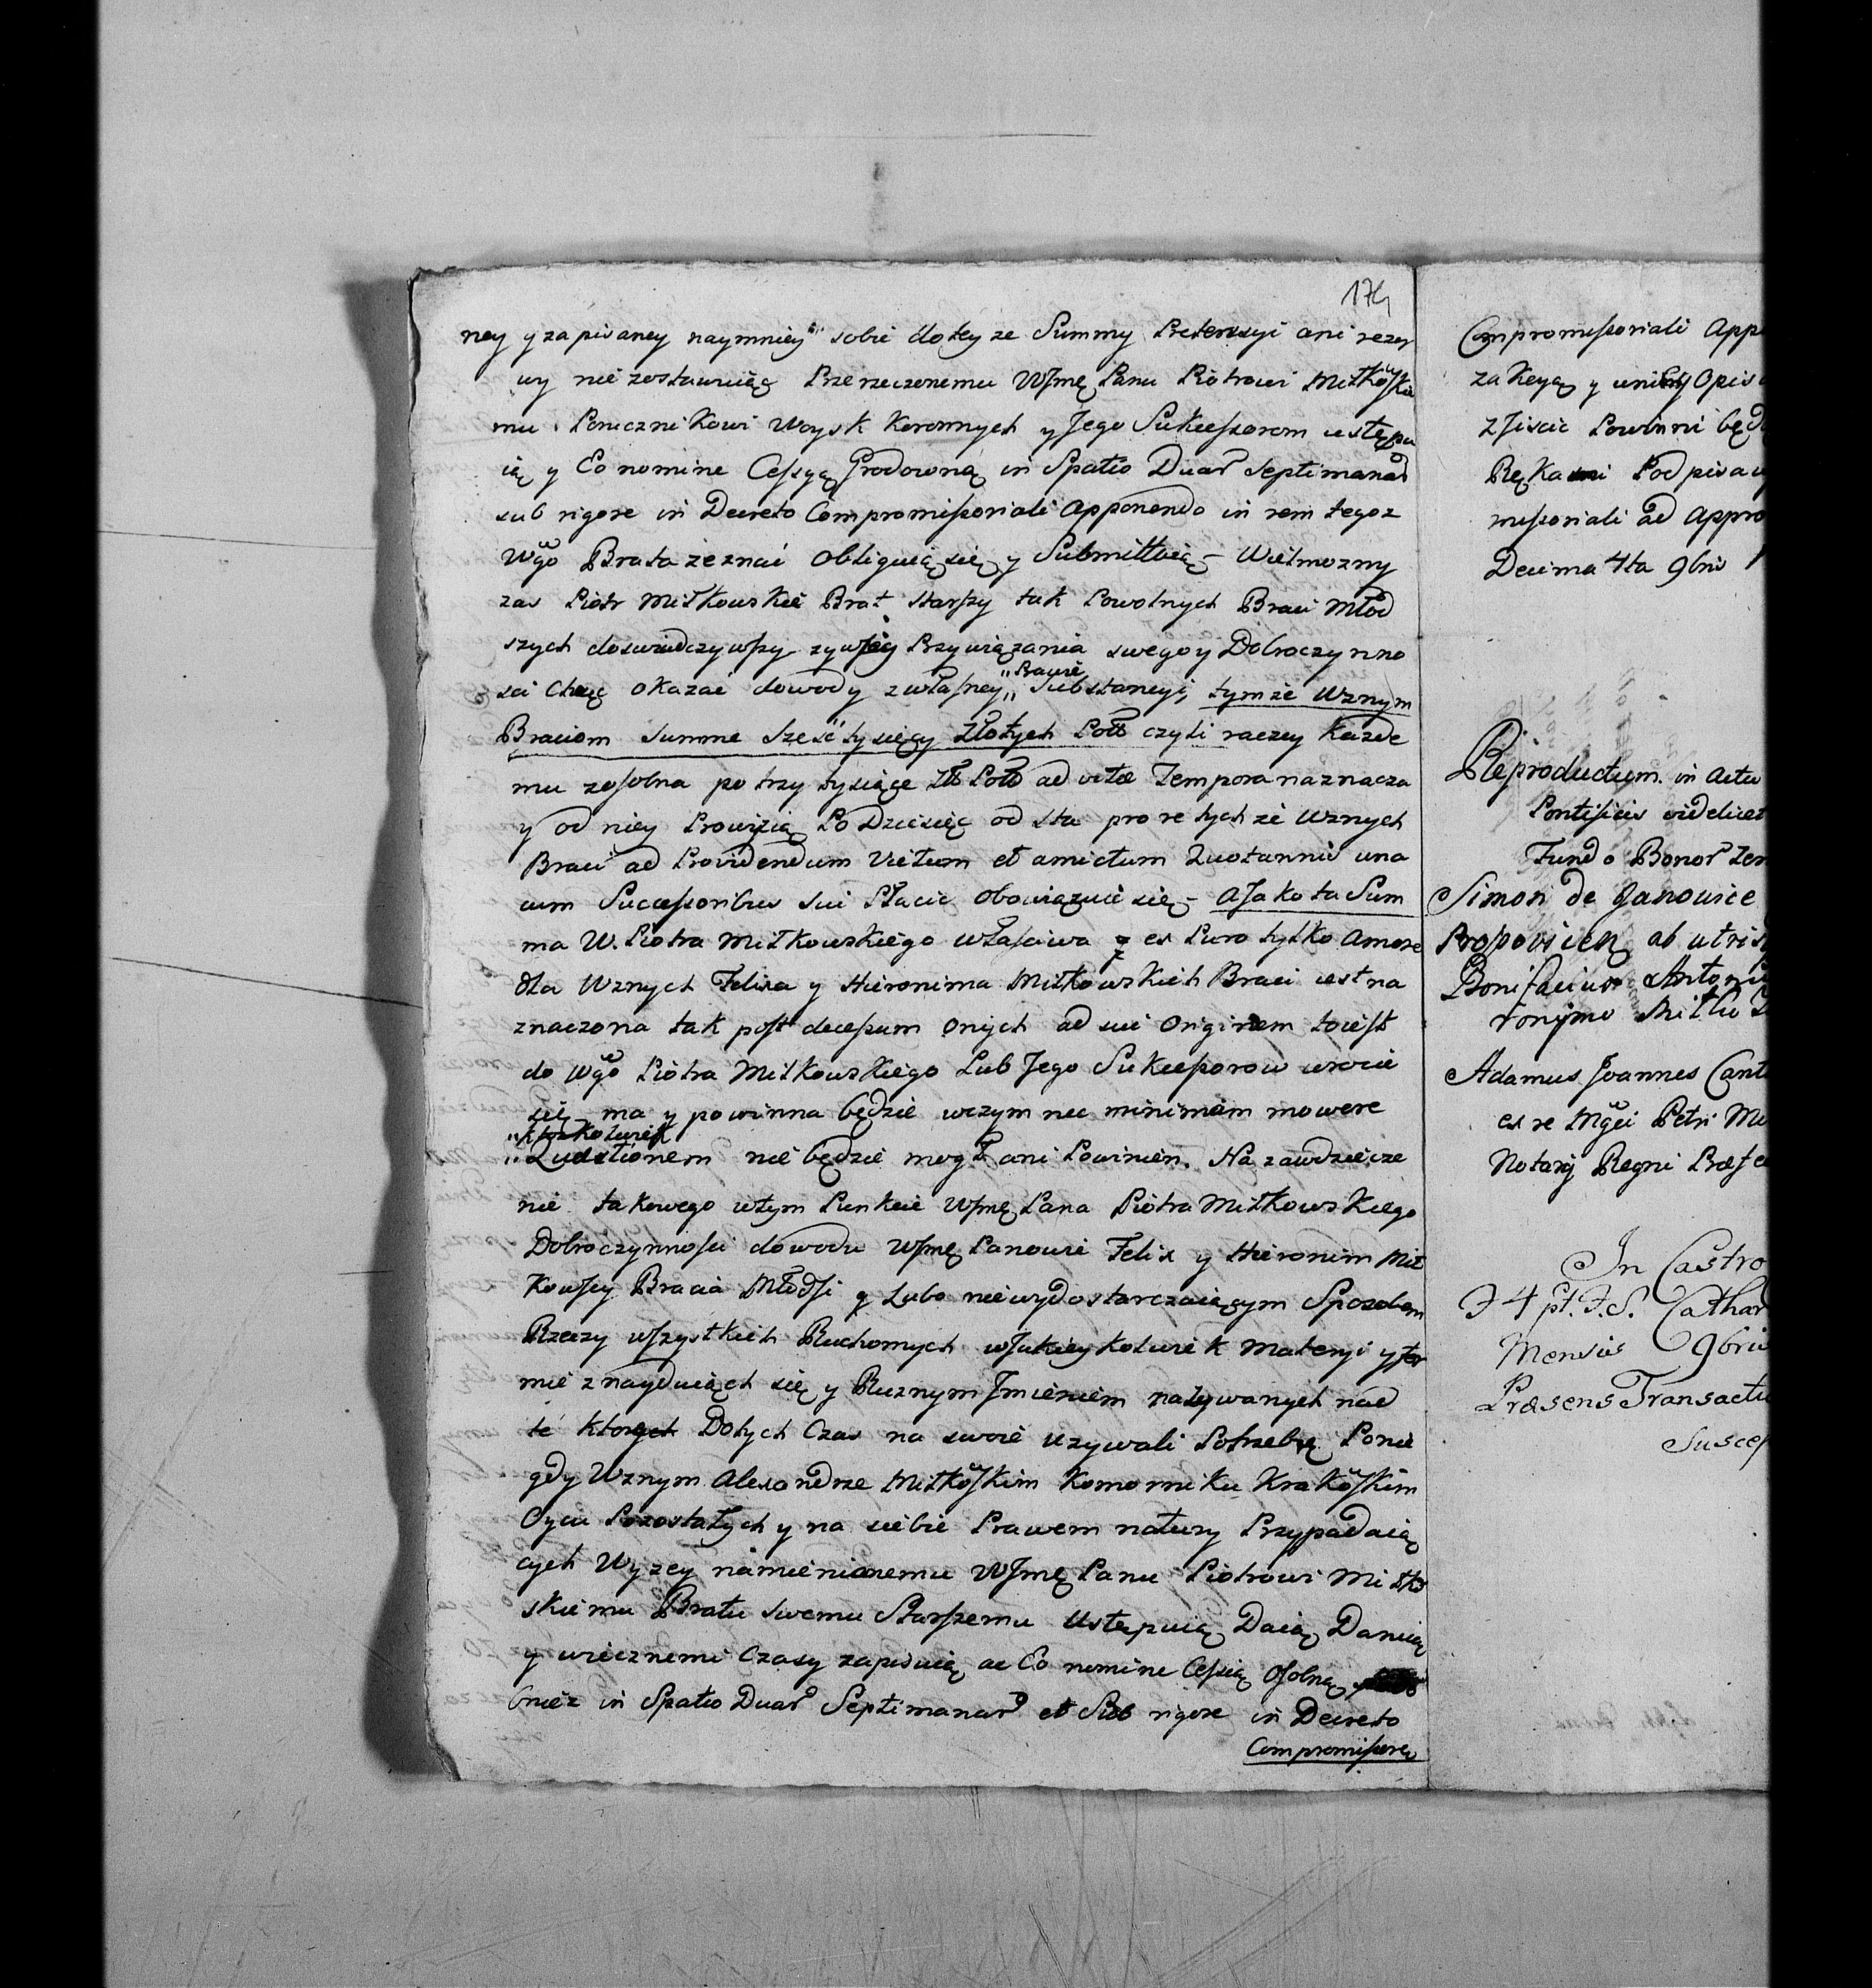 174
ney y zapisaney naymnieyſ sobie do teyze Summy Pretensyi ani rezer
wy nie zostawuiąc Przerzeczonemu WJmę Panu Piotrowi Miłkoſkie
mu Porucznikowi Woysk Koronnych y Jego Sukceſsorom ustępu
ią y Eo nomine Ceſsyą Grodowną in Spatio Duar Septimanar
sub rigore in Decreto Compromiſsoriali Apponendo in rem tegoz
Wgo Brata zeznać obliguią się y Submittuią - Wielmozny
zas Piotr Miłkowski Brat starſzy tak Powolnych Braci Młod
szych doswiadczywſzy Przywiązania swego y Dobroczynno
sci Chcąc okazać dowody z własney „ Substancyi, tymze Wznym
„Prawie
Braciom summe sześć tysięcy Złotych Poll czyli raczey Kazde
mu zosobna po trzy tysiące Zll Poll ad vitæ Tempora naznacza
y od niey Prowizią Po Dziesięć od sta pro re tychze Wznych
Braci ad Providendum Victum et amictum Quotannis una
cum Succeſsoribus sui Płacić obowiązuie się - A Jako ta Sum
ma W. Piotra Miłkowskiego właſciwa y ex Puro tylko Amore
dla Wznych Felixa y Hieronima Miłkowskich Braci iest na
znaczona tak post deceſsum onych ad sui Originem toiest
do Wgo Piotra Miłkowskiego Lub Jego Sukceſsorow wrocić
się ma y powinna będzie wczym nec minimam mowere
„ktozkolwiek
„Quæstionem nie będzie mogł ani Powinien. Na zawdzięcze
nie takowego wtym Punkcie WJmę Pana Piotra Miłkowskiego
Dobroczynności dowodu WJmę Panowie Felix y Hieronim Mił
kowſcy Bracia Młodſi y Lubo niewydostarczaiącym Sposobem
Rzeczy wſzystkich Ruchomych wJakieykolwiek Materyi y for
mie znayduiących się y Roznym Jmieniem nazywanych nad
te ktorych Dotych Czas na swoie uzywali Potrzebę Ponie
gdy Wznym Alexandrze Miłkoſkim Komorniku Krakoſkim
Oycu Pozostałych y na siebie Prawem natury Przypadaią
cych Wyzey namienionemu WJmę Panu Piotrowi Miłko
skiemu Bratu swemu Starſzemu Ustępuią Daią Daruią
y wiecznemi Czasy zapisuią ac Eo nomine Ceſsią Osobną
bniez in Spatio Duar Septimanar et Sub rigore in Decreto
Compromiſsoria
Compromiſsoriali App
zakeyą y
ziscic Powinni będą
Rękami Podpisa
miſsoriali ad Appro
Decima 4ta 9bris
Reproductum in Actu
Pontificis videlicet
Fundo Bonor
Simon de Janowice
ab utris
Bonifacius Antoni
ronymo
Adamus Joannes Cant
ex re Mgci Petri Mi
Notarij Regni
In Castro
F 4 pt. F. S. Cathar
Mensis 9bris
Præsens Transactu
Suscep